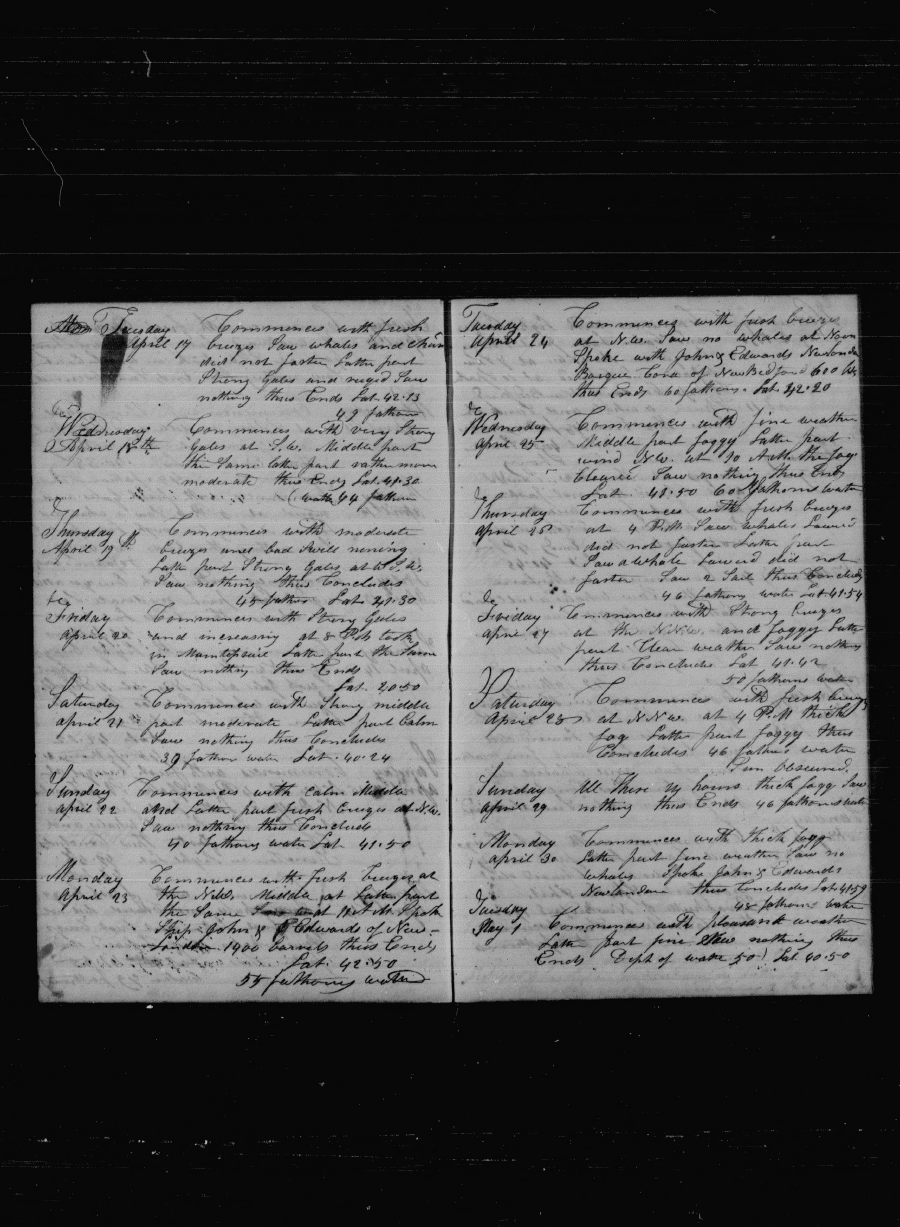 Tuesday Commences with fresh
April 17 breezes Saw whales and
did not fasten Latter part
Strong Gales and ruged Saw
nothing thus Ends Lat 42.13
49 fathom
Wednesday Commences with very Strong
April 18th Gales at S.W. Middle part
the Same latter part rather more
moderate thus Ends Lat 41.30
water 44 fathom
Thursday Commences with moderate
April 19th breezes and bad Swell
Latter part Strong Gales at
Saw nothing thus Concludes
45 fathoms Lat 41.30
Friday Commences with Strong Gales
April 20 and increasing at 8 P.M. took
in Maintopsail Latter part the Same
Saw nothing thus Ends
Lat. 20.50
Saturday Commences with Strong middle
april 21 part moderate Latter part Calm
Saw nothing thus Concludes
39 fathom water Lat. 40.24
Sunday Commences with calm Middle
april 22 and Latter part fresh breezes at N.W.
Saw nothing thus Concluds
40 fathoms water Lat 41.50
Monday Commences with fresh breezes at
april 23 the Middle at Latter part
the Same and 11 A.M. Spoke
Ship John & Edwards of New-
London 1900 barrels thus Ends
Lat. 42.50
55 fathoms water
Tuesday Commences with fresh breezes
april 24 at N.W. Saw no whales at Noon
Spoke with John & Edwards Newlondon
Barque Cora of New Bedford 600
thus Ends 60 fathoms. Lat. 42.20
Wednesday Commences with fine weather
april 25 Middle part foggy Latter part
wind N.W. at 10 A.M. the fog
Cleared Saw nothing thus Ends
Lat. 48.50 60 fathoms water
Thursday Commences with fresh breezes
april 26 at 4 P.M. Saw whales Lowerd
did not fasten Latter part
Saw a whale Lowerd did not
fasten Saw 2 Sail thus Concluds
46 fathoms water Lat 41.54
Friday Commences with Strong breezes
april 27 at the N.N.W. and foggy Latter
part Clear weather Saw nothing
thus Concludes Lat 41.42
50 fathoms water
Saturday Commences with fresh breezes
April 28 at N N W. at 4 P.M thick
fog Latter part foggy thus
Concludes 46 fathoms water
Sun obscured.
Sunday All these 24 hours thick fogg Saw
april 29 nothing thus Ends 46 fathoms water
Monday Commences with thick fogg
april 30 Latter part fine weather Saw no
whales Spoke John & Edwards
Newlondon thus Concludes Lat 41.59
48 fathoms water
Tuesday
May 1 Commences with pleasant weather
Latter part fine Saw nothing thus
Ends Dept of water 50 Lat 40.50